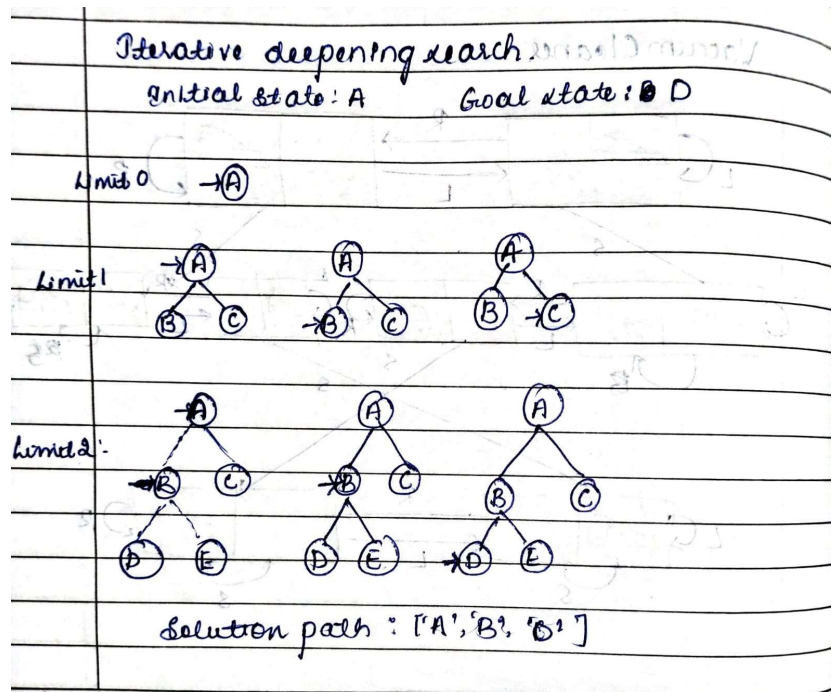 Iterative deepening search.
Initial state: A Goal state: D
Limit 0 →A
A A A
Limit 1
B C →B C B →C
→A A A
Limit 2:
B C →B C B C
D E D E →D E
Solution path : ['A', 'B', 'D']